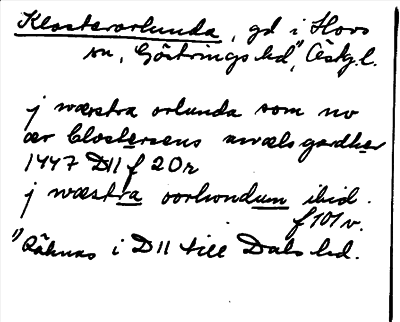 Klosterorlunda, gd i Hovs
sn, Göstrings hd¹⁾, Östg.l.
j wæstra orlunda som nv
ær Closterens awels gardher
1447 D11 f 20r
j wæstra oorlwndum ibid.
f 101 v.
¹⁾Räknas i D11 till Dals hd.